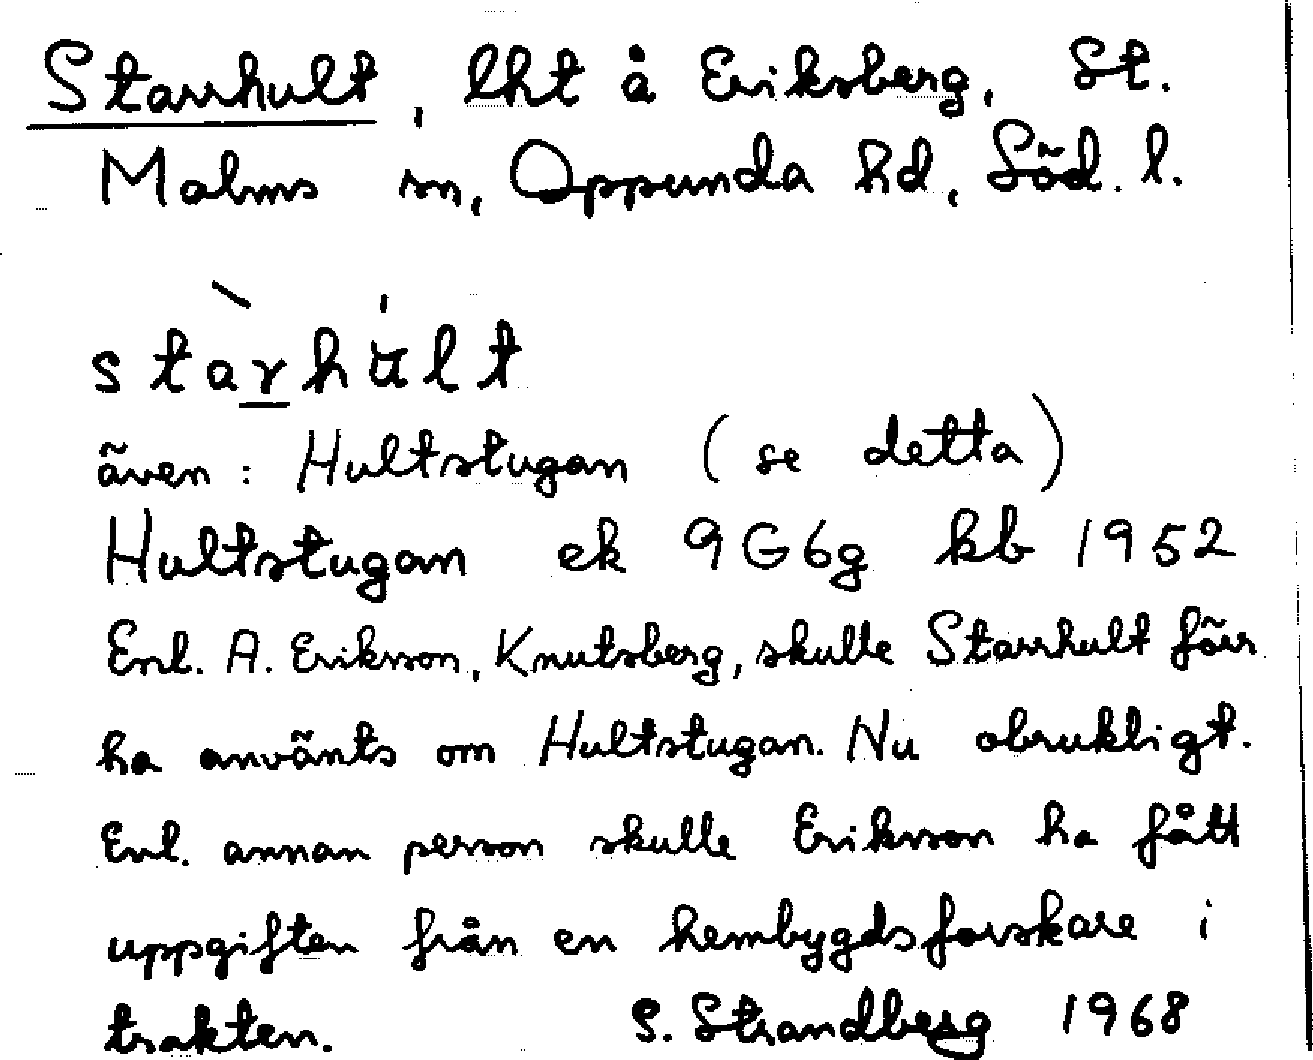 Starrhult, lht å Eriksberg, St.
Malms sn, Oppunda hd, Söd. l.
starhult
även: Hultstugan (se detta)
Hultstugan ek 9G6g kb 1952
Enl. A. Erikson, Knutsberg, skulle Starrhult förr
ha använts om Hultstugan. Nu obrukligt.
Enl. annan person skulle Erikson ha fått
uppgiften från en hembygdsforskare i
trakten. S. Strandberg 1968